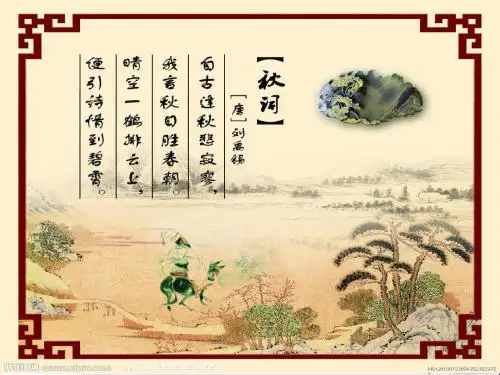 【秋词】
[唐]刘禹锡
自古逢秋悲寂寥，
我言秋日胜春朝。
晴空一鹤排云上，
便引诗情到碧霄。